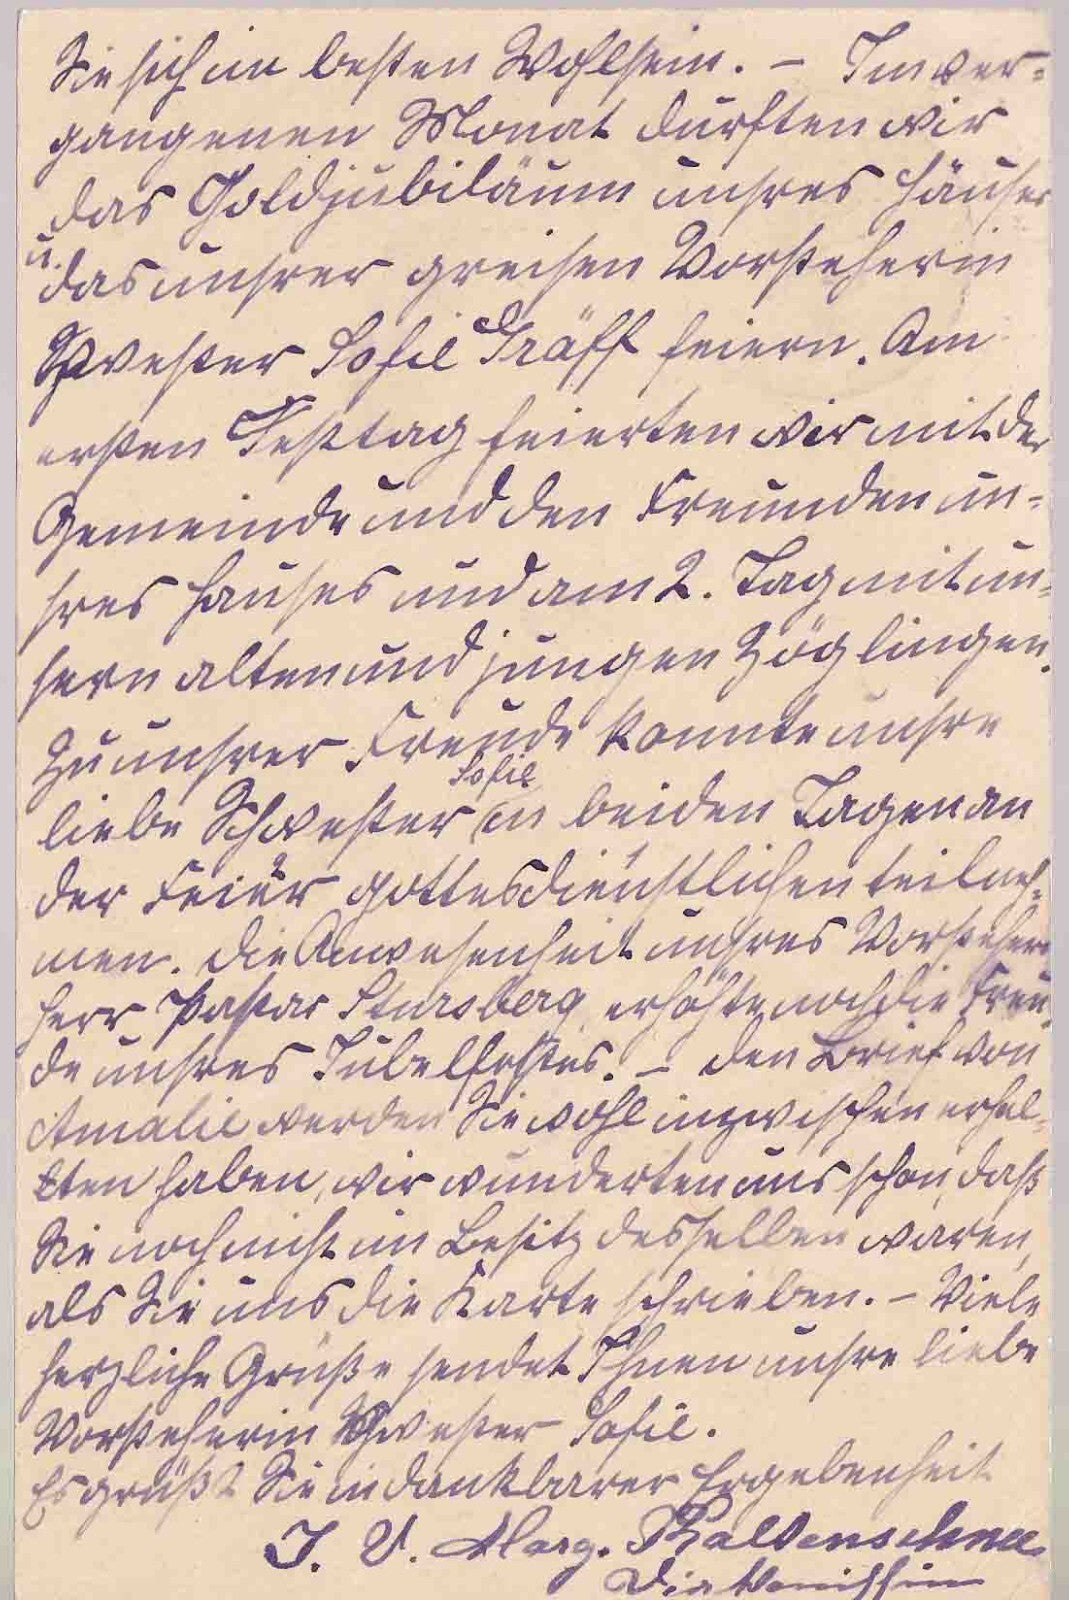 Sie sich im besten Wohlsein. – Im ver-
gangenen Monat durften wir
das Goldjubiläum unsres Hauses
u. das unsrer greisen Vorsteherin
Schwester Sofie Gräff feiern. Am
ersten Festtag feierten wir mit der
Gemeinde und den Freunden un-
sres Hauses und am 2. Tag mit un-
sern alten und jungen Zöglingen.
Zu unsrer Freude konnte unsre
liebe Schwester Sofie an beiden Tagen an
der Feier gottesdienstlichen teilneh-
men. Die Anwesenheit unsres Vorstehers
Herr Pastor Stursberg, erhöhte noch die Freu-
de unsres Jubelfestes. – Den Brief von
Amalie werden Sie wohl inzwischen erhal-
ten haben, wir wunderten uns schon, daß
Sie noch nicht im Besitz desselben waren,
als Sie uns die Karte schrieben. – Viele
herzliche Grüße sendet Ihnen unsre liebe
Vorsteherin Schwester Sofie.
Es grüßt Sie in dankbarer Ergebenheit
I. V. Marg. Kaltenschnee
Diakonissin